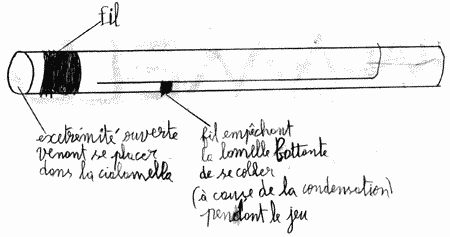 fil
excetrémité ouverte
venant se placer
dans la cialamella
fil empêchant
la lamelle battante
de se coller
(à cause de la condensation)
pendant le jeu